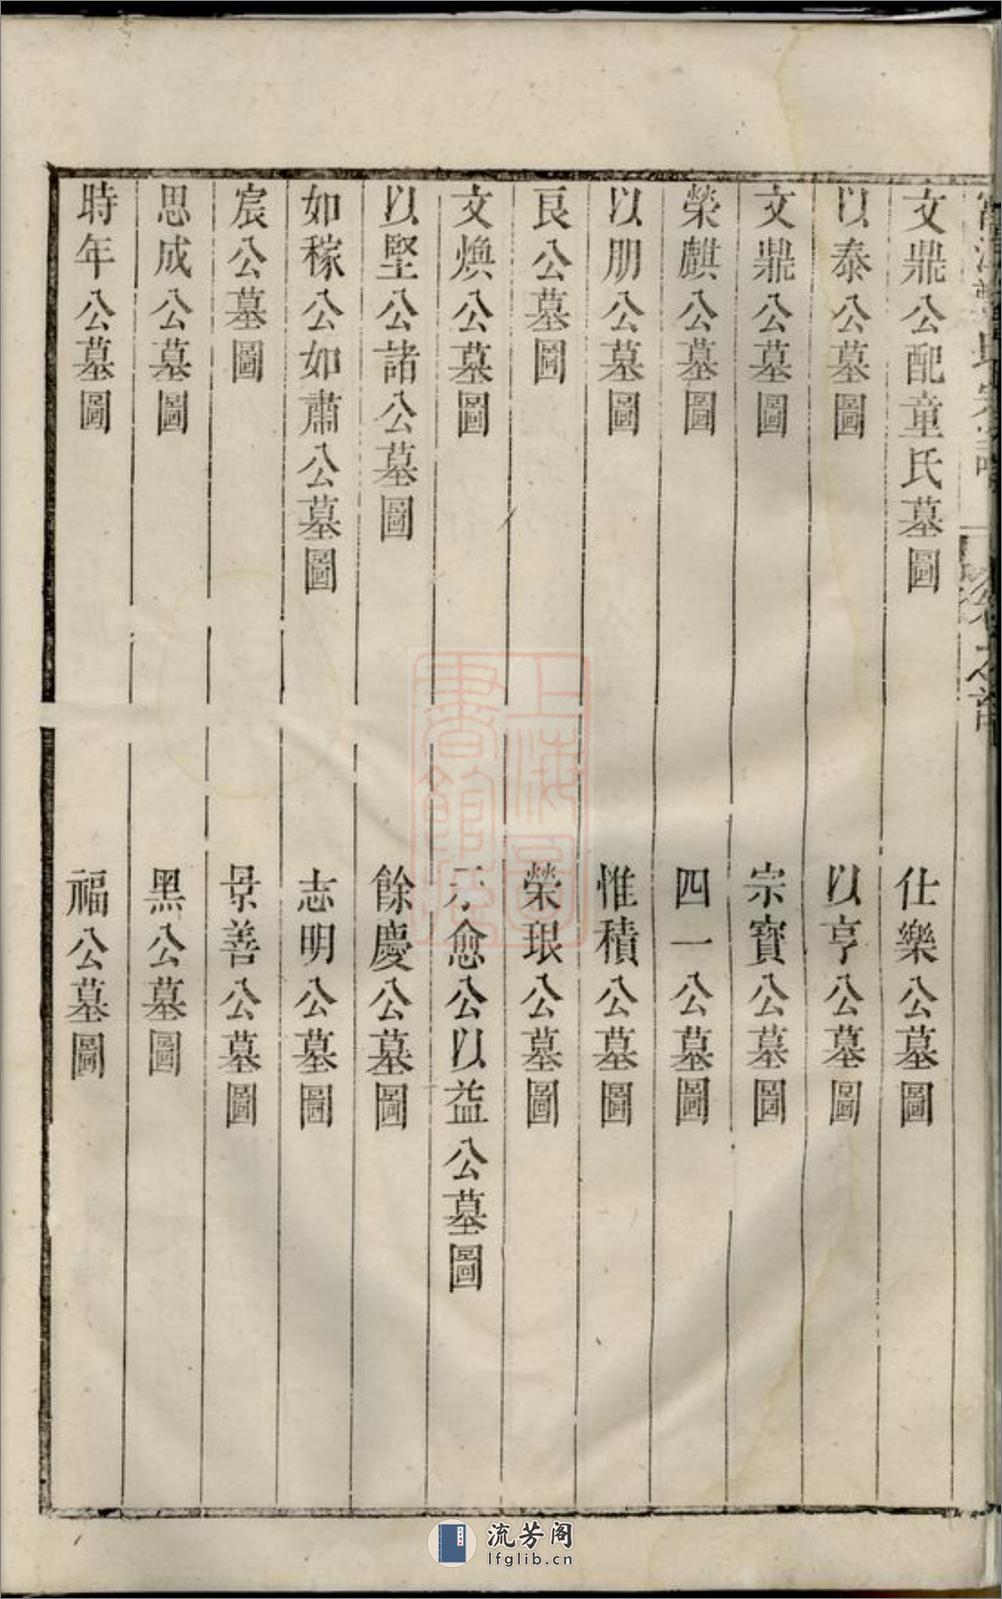 文鼎公配童氏墓圖
仕樂公墓圖
以泰公墓圖
以亨公墓圖
文鼎公墓圖
宗寶公墓圖
榮麒公墓圖
四一公墓圖
以朋公墓圖
惟積公墓圖
良公墓圖
榮珢公墓圖
文煥公墓圖
愈公以益公墓圖
以堅公諸公墓圖
餘慶公墓圖
如稼公如肅公墓圖
志明公墓圖
宸公墓圖
景善公墓圖
思成公墓圖
黑公墓圖
時年公墓圖
福公墓圖
上海圖書館藏
流芳阁
lfglib.cn